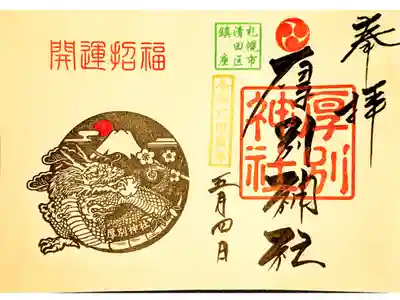 奉拝
厚別神社
厚別
神社
札幌市
清田区
鎮座
五月四日
開運招福
厚別神社